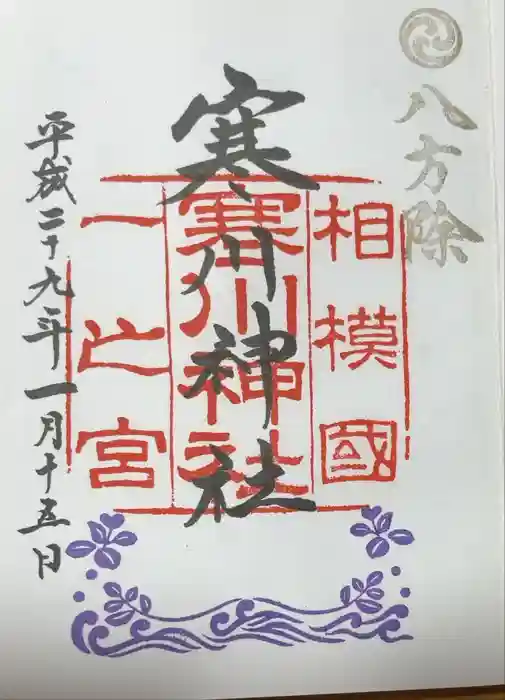 八方除
相模國
寒川神社
一之宮
寒川神社
平成二十九年一月十五日